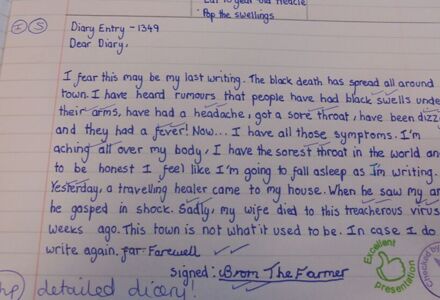 Eat 10 year old treacle
Pop the swellings
I S
Diary Entry - 1349
Dear Diary,
I fear this may be my last writing. The black death has spread all around
town. I have heard rumours that people have had black swells under
their arms, have had a headache, got a sore throat, have been dizz
and they had a fever! Now... I have all those symptoms. I'm
aching all over my body, I have the sorest throat in the world an
to be honest I feel like I'm going to fall asleep as I'm writing.
Yesterday, a travelling healer came to my house. When he saw my ar
he gasped in shock. Sadly, my wife died to this treacherous virus
weeks ago. This town is not what it used to be. In case I do
write again, far Farewell
signed: Brom The Farmer
Excellent
presentation
Checked by
detailed diary!